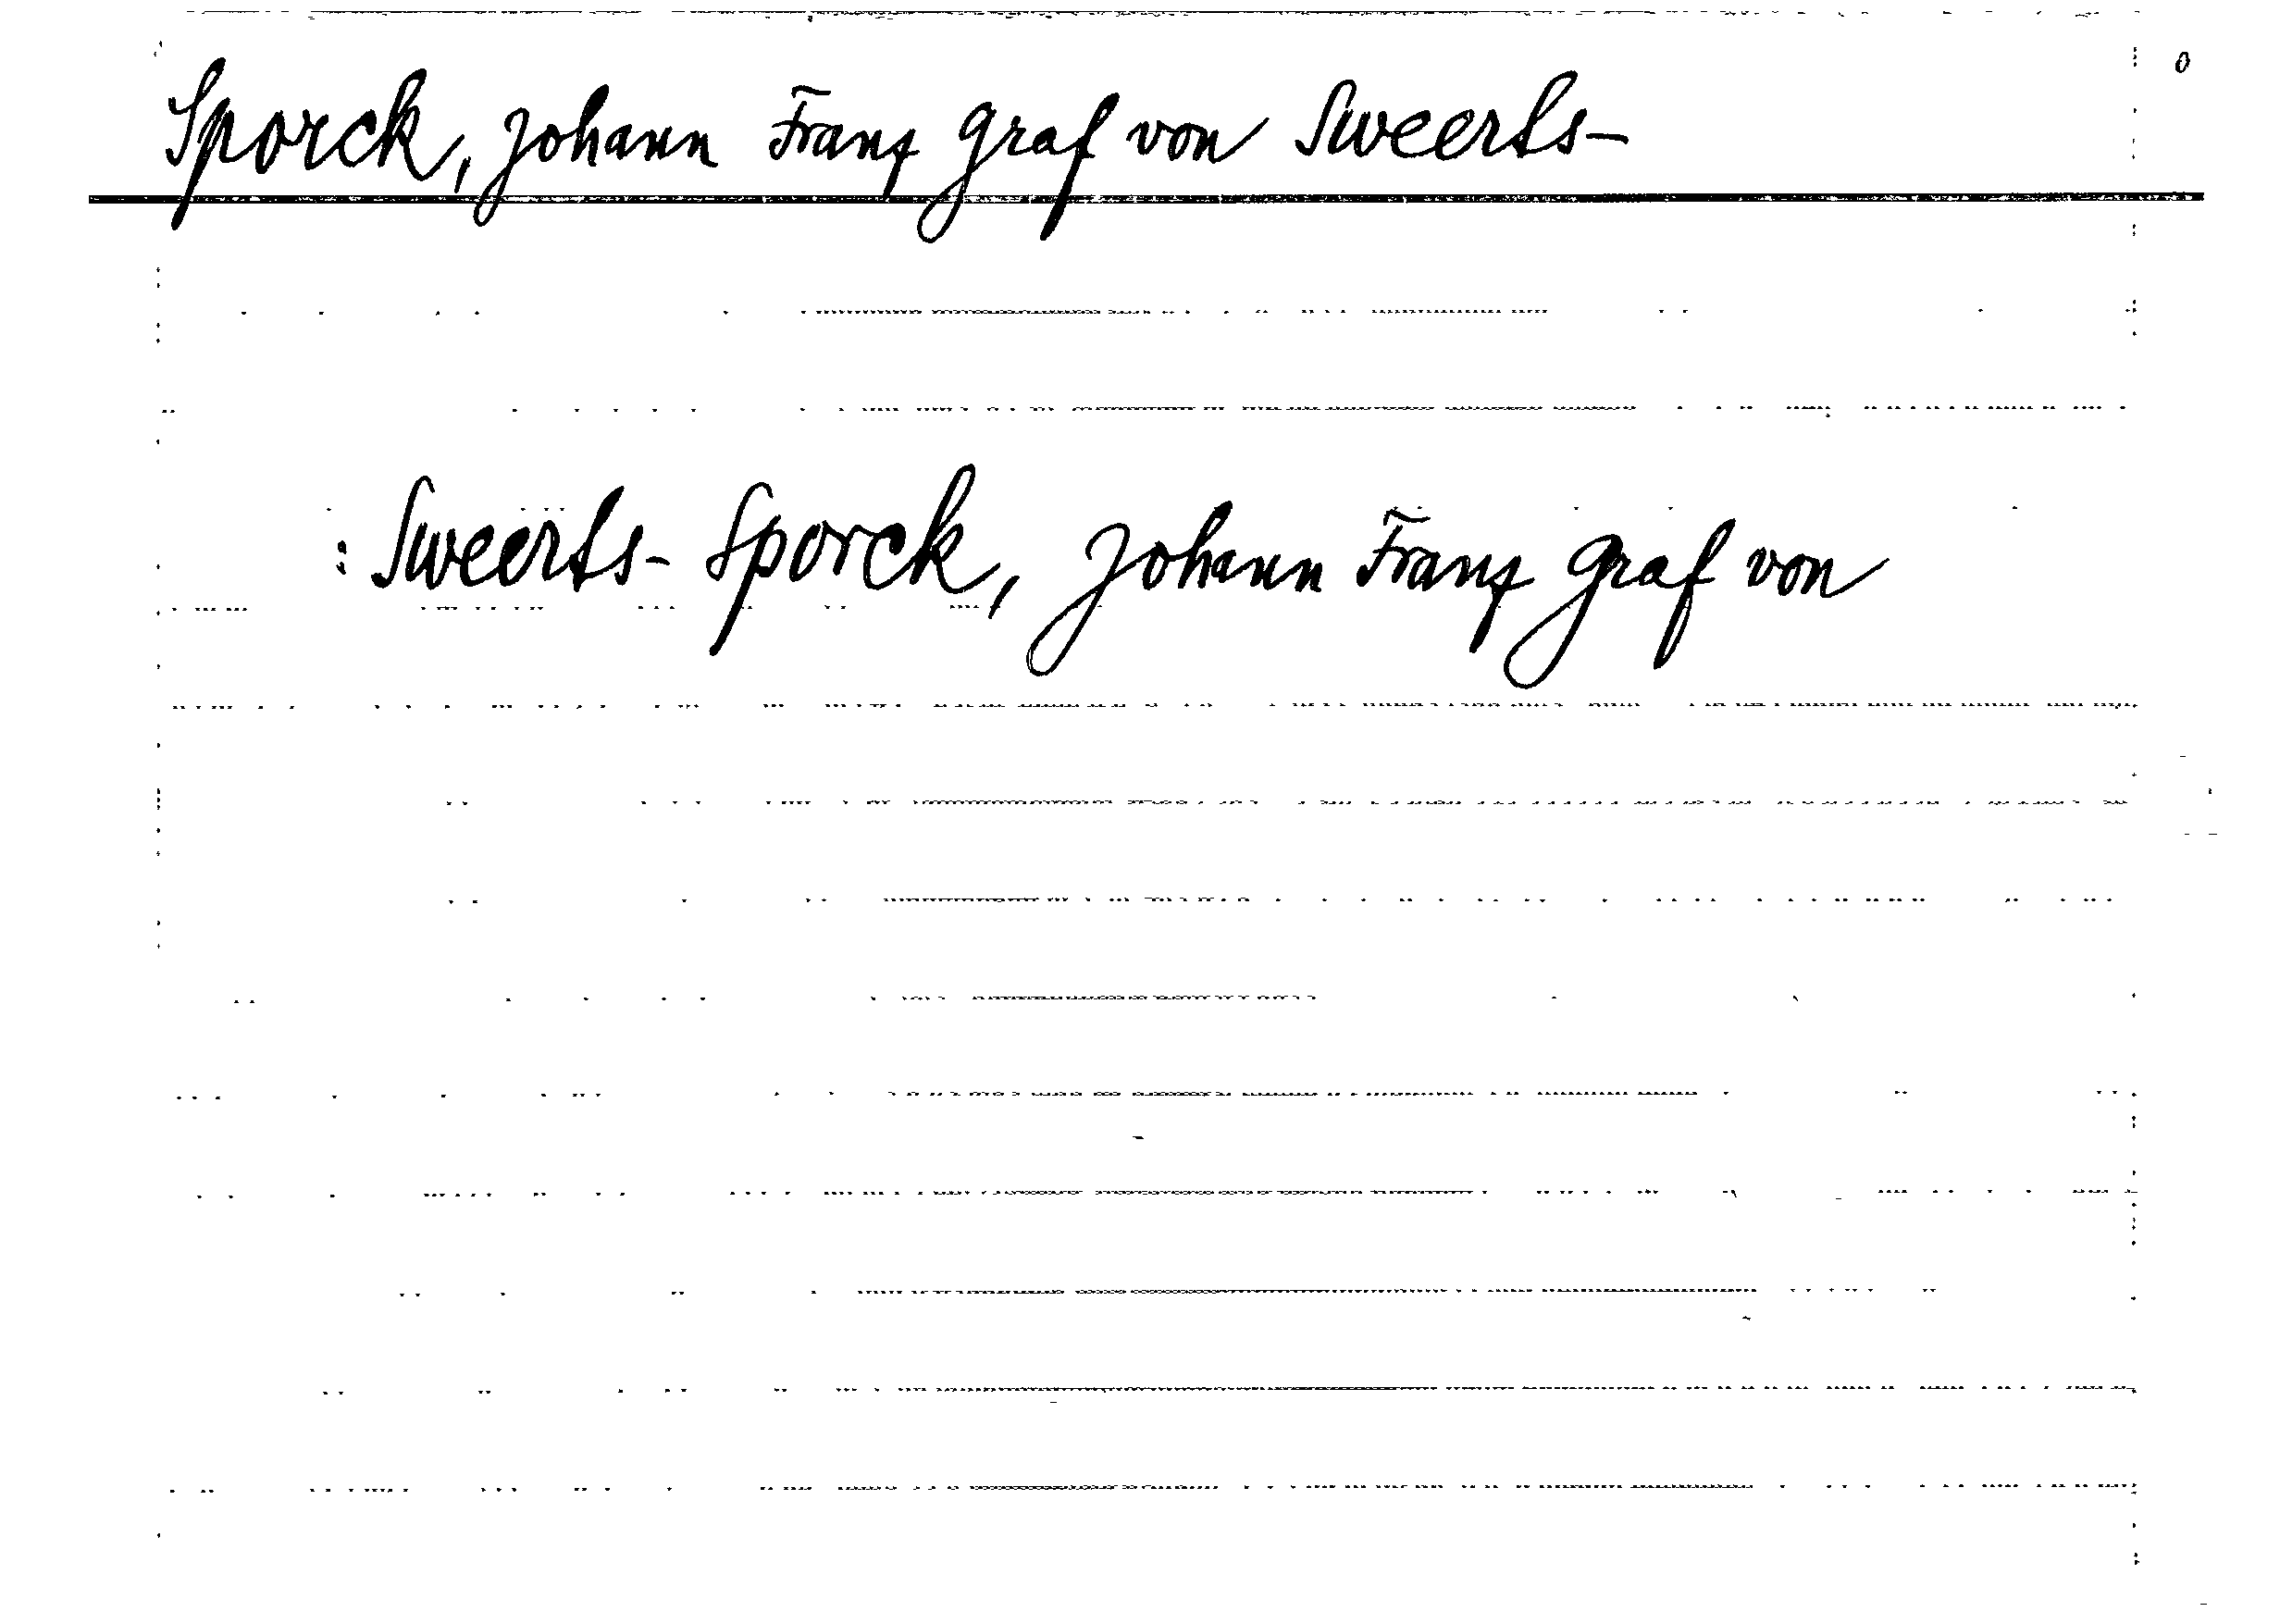 Sporck, Johann Franz Graf von Sweerts-
0
: Sweerts-Sporck, Johann Franz Graf von